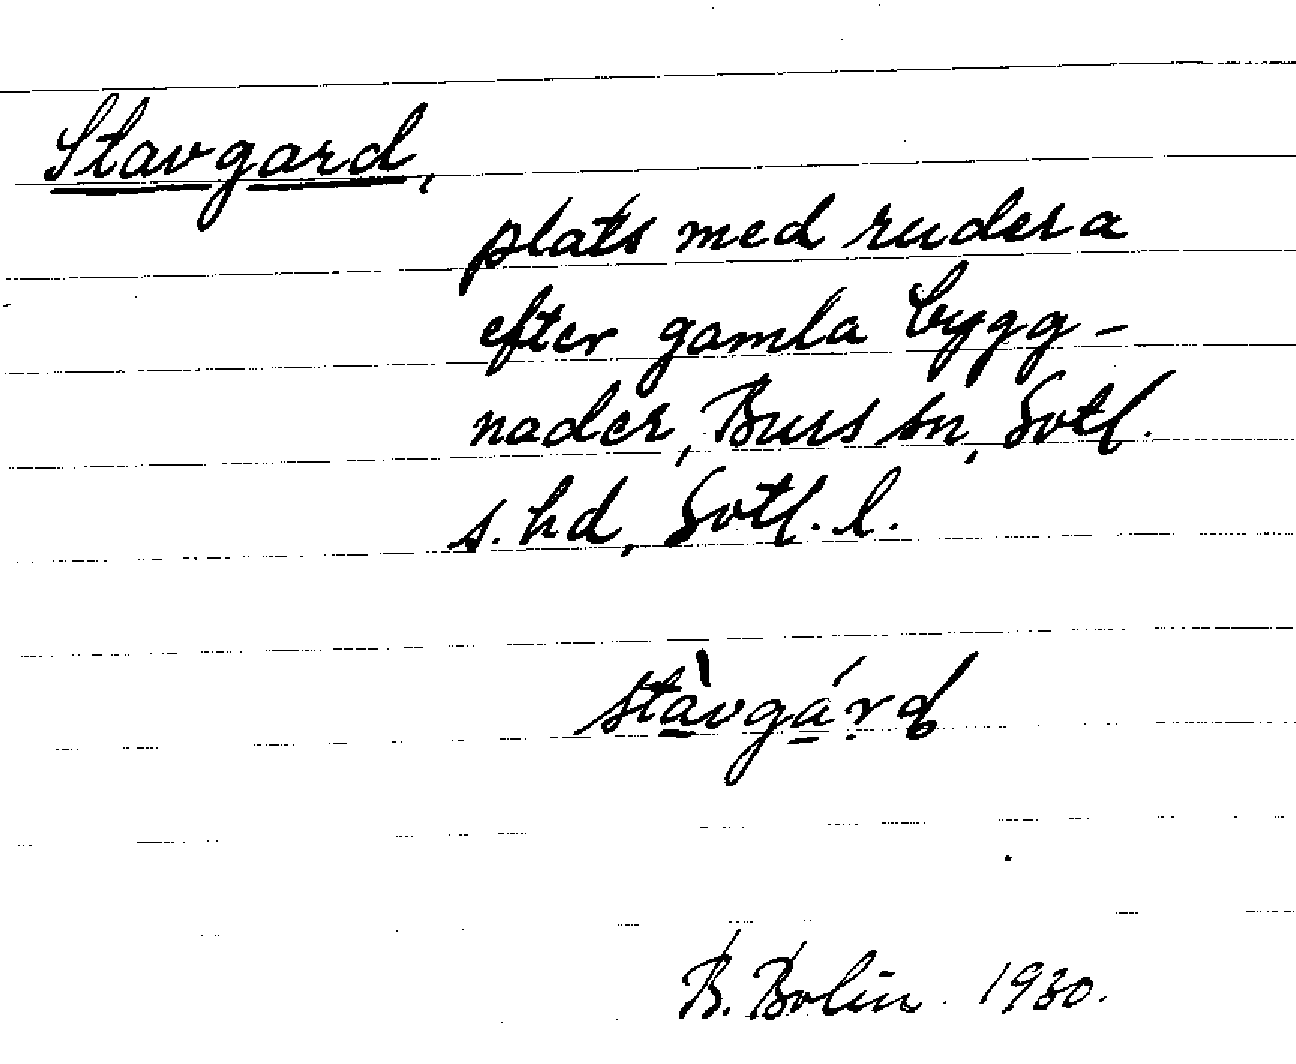 Stavgard,
plats med rudera
efter gamla bygg-
nader, Burs sn, Gotl.
s. hd, Gotl. l.
stàvgárd
B. Bolin. 1930.